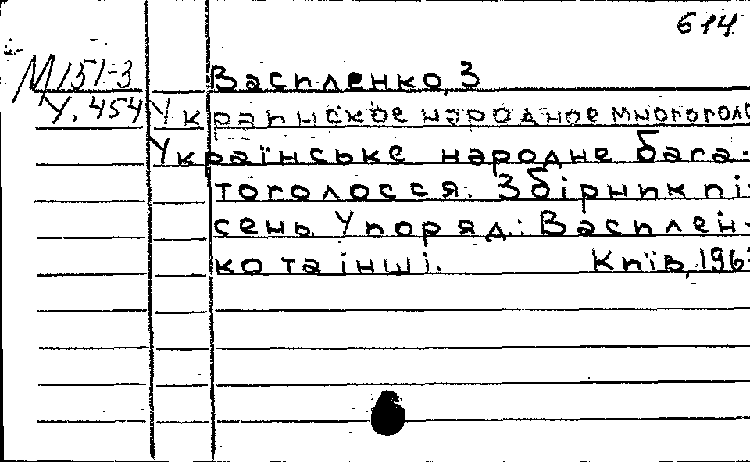 614
М151-3 Василенко, З
У. 454 Украинское народное многогол
Українське народне бага-
тоголосся. Збірник пі-
сень. Упоряд.: Василен-
ко та інші. Київ, 196